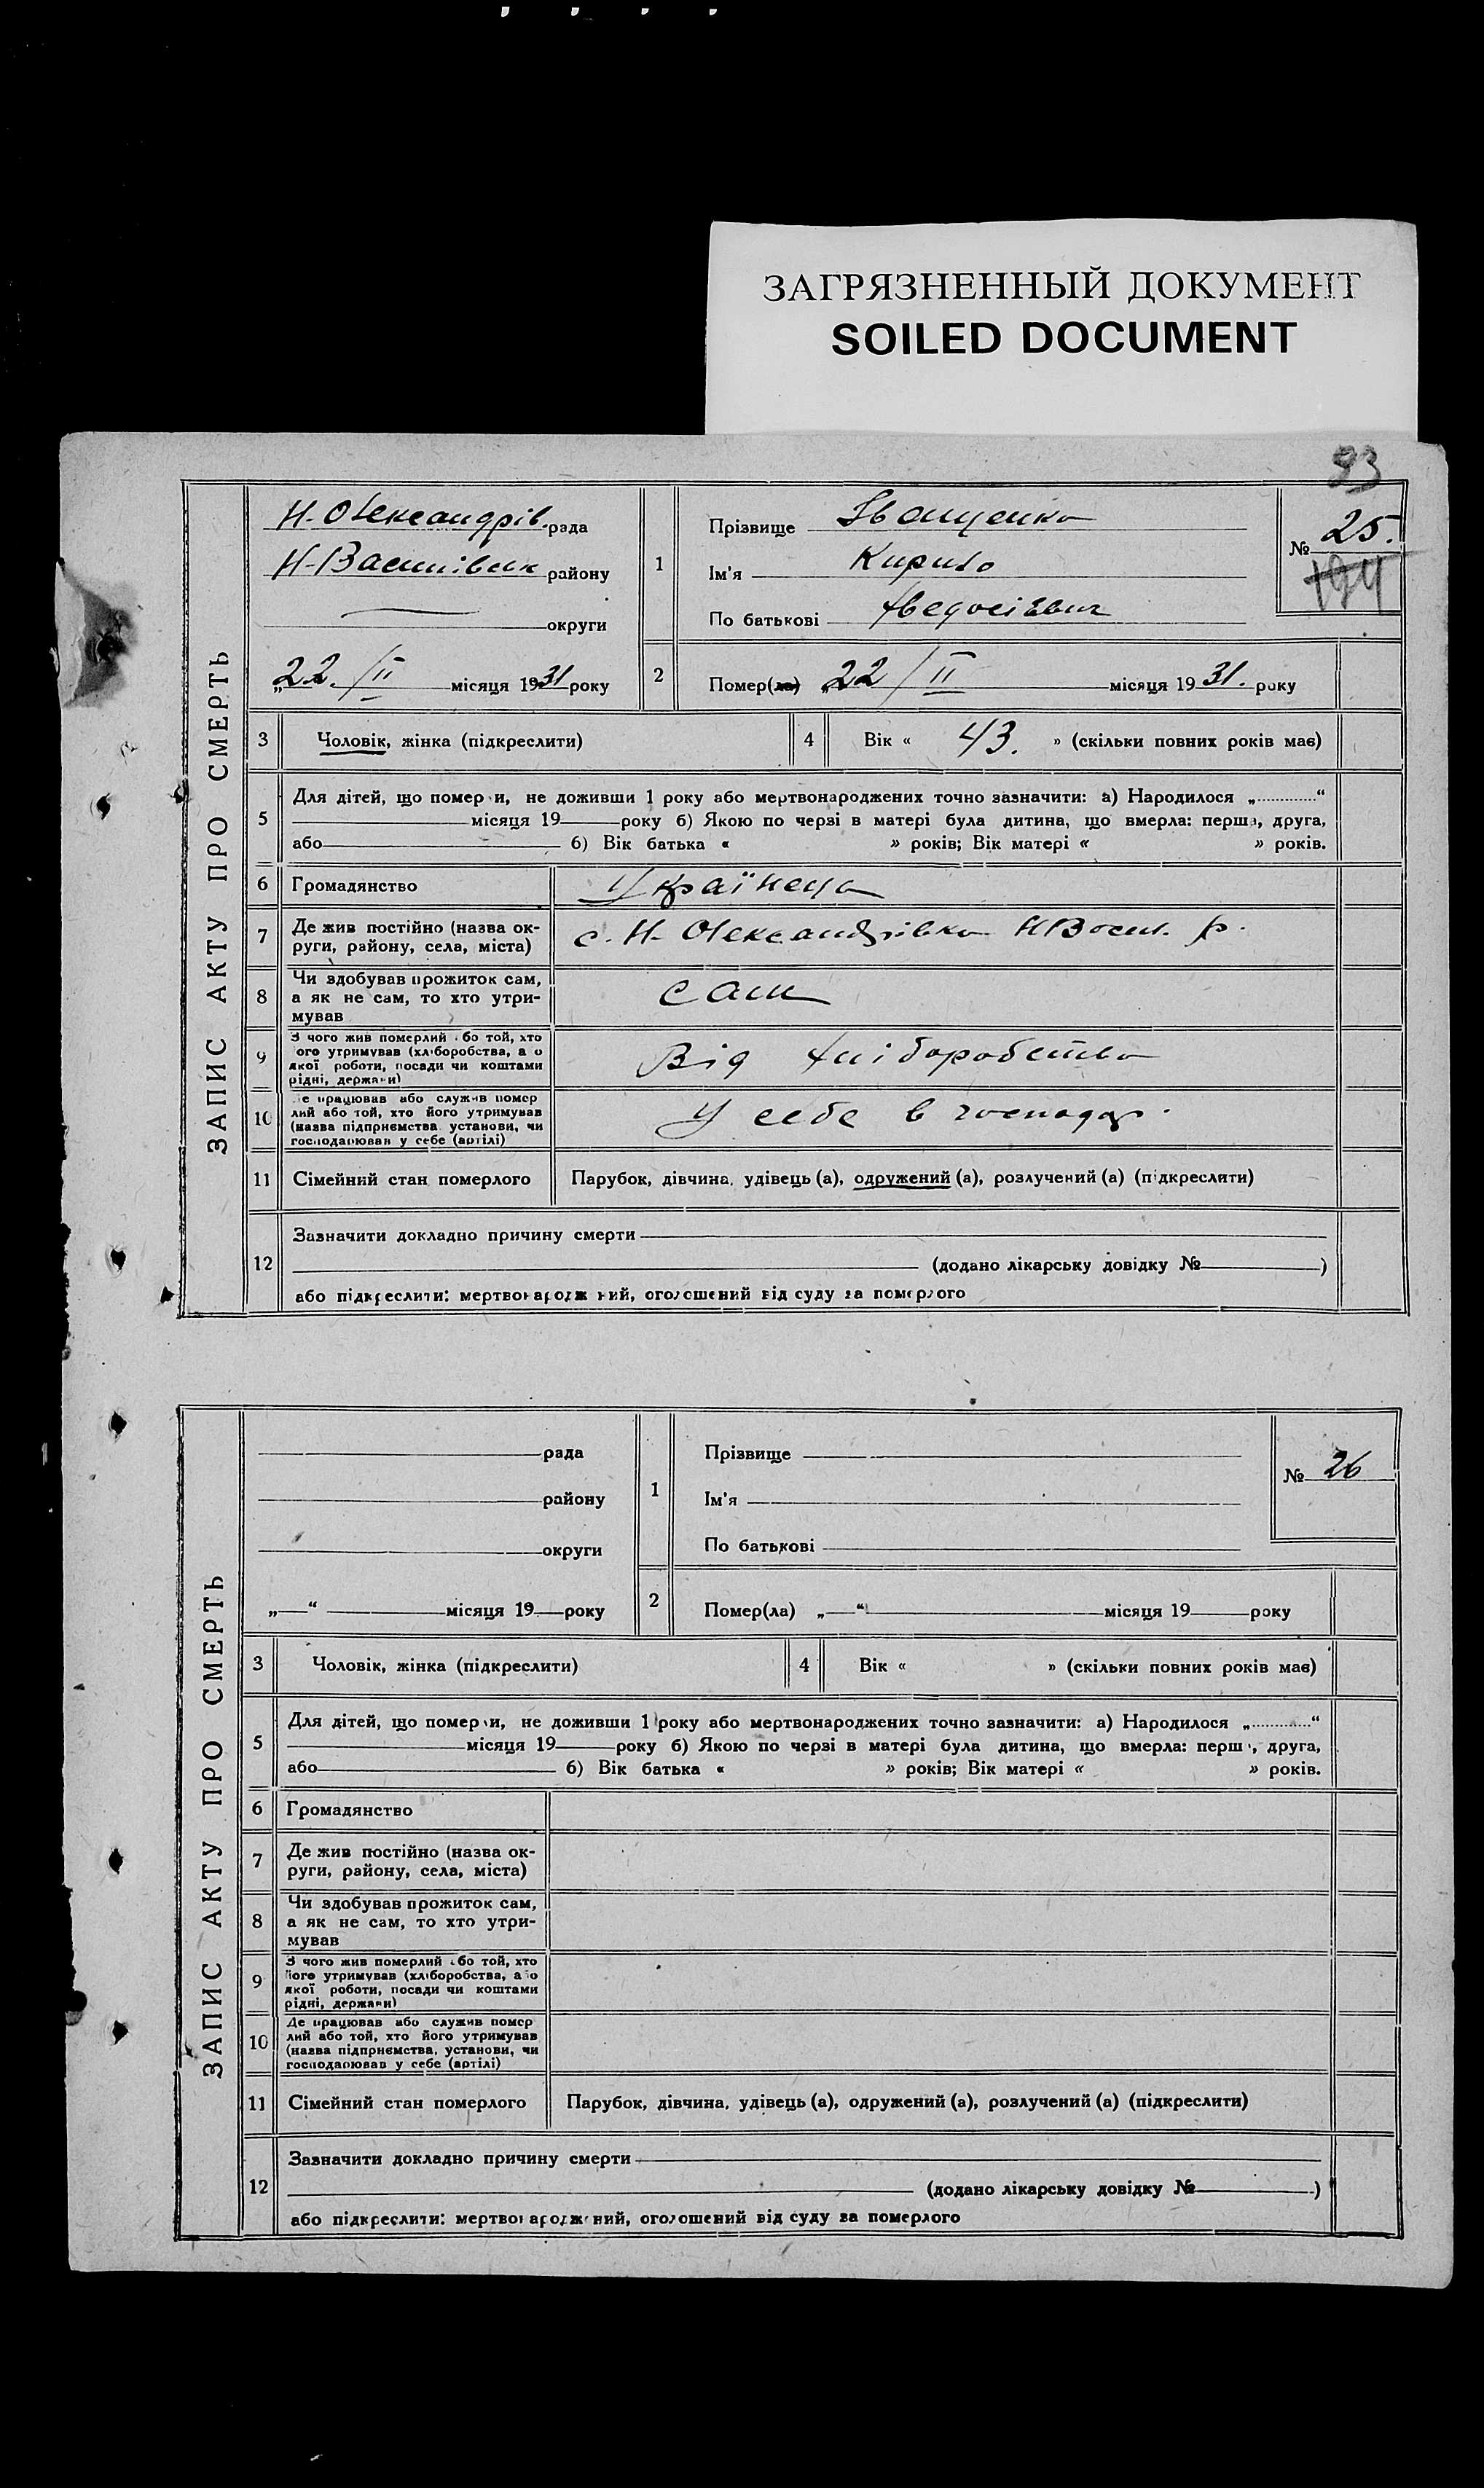 ЗАГРЯЗНЕННЫЙ ДОКУМЕНТ
SOILED DOCUMENT
93
ЗАПИС АКТУ ПРО СМЕРТЬ
Н-Олександрів. рада
Н-Василівськ району
округи
„22. / II місяця 1931 року
1
Прізвище Іващенко
Ім'я Кирило
По батькові Хведосієвич
№ 25.
194
2
Помер(ла) „22 / II місяця 19 31. року
3 Чоловік, жінка (підкреслити)
4 Вік « 43. » (скільки повних років має)
5
Для дітей, що померли, не доживши 1 року або мертвонароджених точно зазначити: а) Народилося „ “
місяця 19 року б) Якою по черзі в матері була дитина, що вмерла: перша, друга,
або б) Вік батька « » років; Вік матері « » років.
6 Громадянство Українець
7 Де жив постійно (назва ок-
руги, району, села, міста)
с. Н-Олександрівка НВасил. р.
8 Чи здобував прожиток сам,
а як не сам, то хто утри-
мував
сам
9 З чого жив померлий або той, хто
його утримував (хліборобства, або
якої роботи, посади чи коштами
рідні, держави)
Від хліборобства
10 Де працював або служив помер
лий або той, хто його утримував
(назва підприємства установи, чи
господарював у себе (артілі)
У себе в господар.
11 Сімейний стан померлого Парубок, дівчина, удівець (а), одружений (а), розлучений (а) (підкреслити)
12
Зазначити докладно причину смерти
(додано лікарську довідку № )
або підкреслити: мертвонароджений, оголошений від суду за померлого
ЗАПИС АКТУ ПРО СМЕРТЬ
рада
району
округи
„ “ місяця 19 року
1
Прізвище
Ім'я
По батькові
№ 26
2
Помер(ла) „ “ місяця 19 року
3 Чоловік, жінка (підкреслити)
4 Вік « » (скільки повних років має)
5
Для дітей, що померли, не доживши 1 року або мертвонароджених точно зазначити: а) Народилося „ “
місяця 19 року б) Якою по черзі в матері була дитина, що вмерла: перша, друга,
або б) Вік батька « » років; Вік матері « » років.
6 Громадянство
7 Де жив постійно (назва ок-
руги, району, села, міста)
8 Чи здобував прожиток сам,
а як не сам, то хто утри-
мував
9 З чого жив померлий або той, хто
його утримував (хліборобства, або
якої роботи, посади чи коштами
рідні, держави)
10 Де працював або служив помер
лий або той, хто його утримував
(назва підприємства, установи, чи
господарював у себе (артілі)
11 Сімейний стан померлого Парубок, дівчина, удівець (а), одружений (а), розлучений (а) (підкреслити)
12
Зазначити докладно причину смерти
(додано лікарську довідку № )
або підкреслити: мертвонароджений, оголошений від суду за померлого